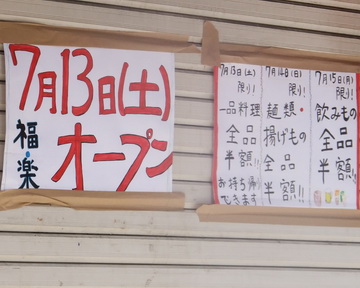 7月13日(土)
福楽
オープン
7月13日(土)
限り!
一品料理
全品
半額!!
お持ち帰り
できます
7月14日(日)
限り!
麺類・
揚げもの
全品
半額!!
7月15日(月)
限り!
飲みもの
全品
半額!!